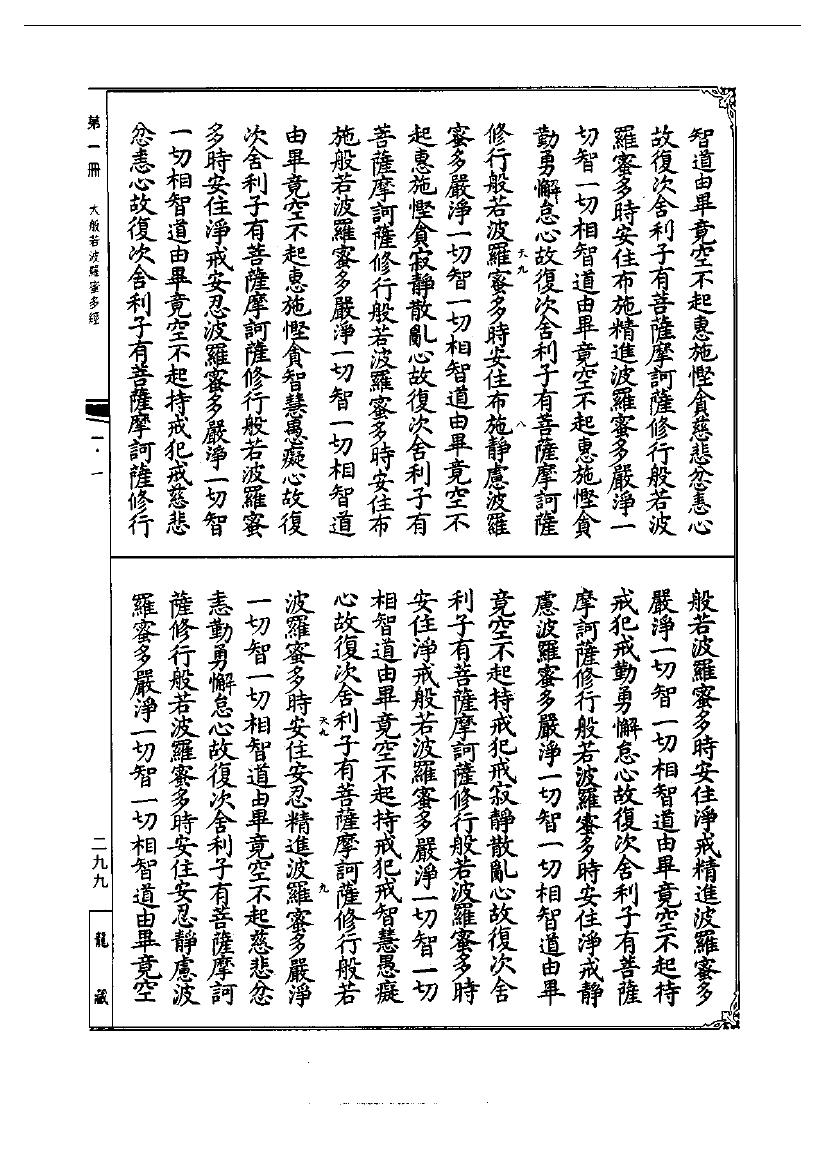 智道由畢竟空不起惠施慳貪慈悲忿恚心
故復次舍利子有菩薩摩訶薩修行般若波
羅蜜多時安住布施精進波羅蜜多嚴淨一
切智一切相智道由畢竟空不起惠施慳貪
勤勇懈怠心故復次舍利子有菩薩摩訶薩
天九 八
修行般若波羅蜜多時安住布施靜慮波羅
蜜多嚴淨一切智一切相智道由畢竟空不
起惠施慳貪寂靜散亂心故復次舍利子有
菩薩摩訶薩修行般若波羅蜜多時安住布
施般若波羅蜜多嚴淨一切智一切相智道
由畢竟空不起惠施慳貪智慧愚癡心故復
次舍利子有菩薩摩訶薩修行般若波羅蜜
多時安住淨戒安忍波羅蜜多嚴淨一切智
一切相智道由畢竟空不起持戒犯戒慈悲
忿恚心故復次舍利子有菩薩摩訶薩修行
般若波羅蜜多時安住淨戒精進波羅蜜多
嚴淨一切智一切相智道由畢竟空不起持
戒犯戒勤勇懈怠心故復次舍利子有菩薩
摩訶薩修行般若波羅蜜多時安住淨戒靜
慮波羅蜜多嚴淨一切智一切相智道由畢
竟空不起持戒犯戒寂靜散亂心故復次舍
利子有菩薩摩訶薩修行般若波羅蜜多時
安住淨戒般若波羅蜜多嚴淨一切智一切
相智道由畢竟空不起持戒犯戒智慧愚癡
心故復次舍利子有菩薩摩訶薩修行般若
天九 九
波羅蜜多時安住安忍精進波羅蜜多嚴淨
一切智一切相智道由畢竟空不起慈悲忿
恚勤勇懈怠心故復次舍利子有菩薩摩訶
薩修行般若波羅蜜多時安住安忍靜慮波
羅蜜多嚴淨一切智一切相智道由畢竟空
第一冊 大般若波羅蜜多經 一·一
二九九 龍藏